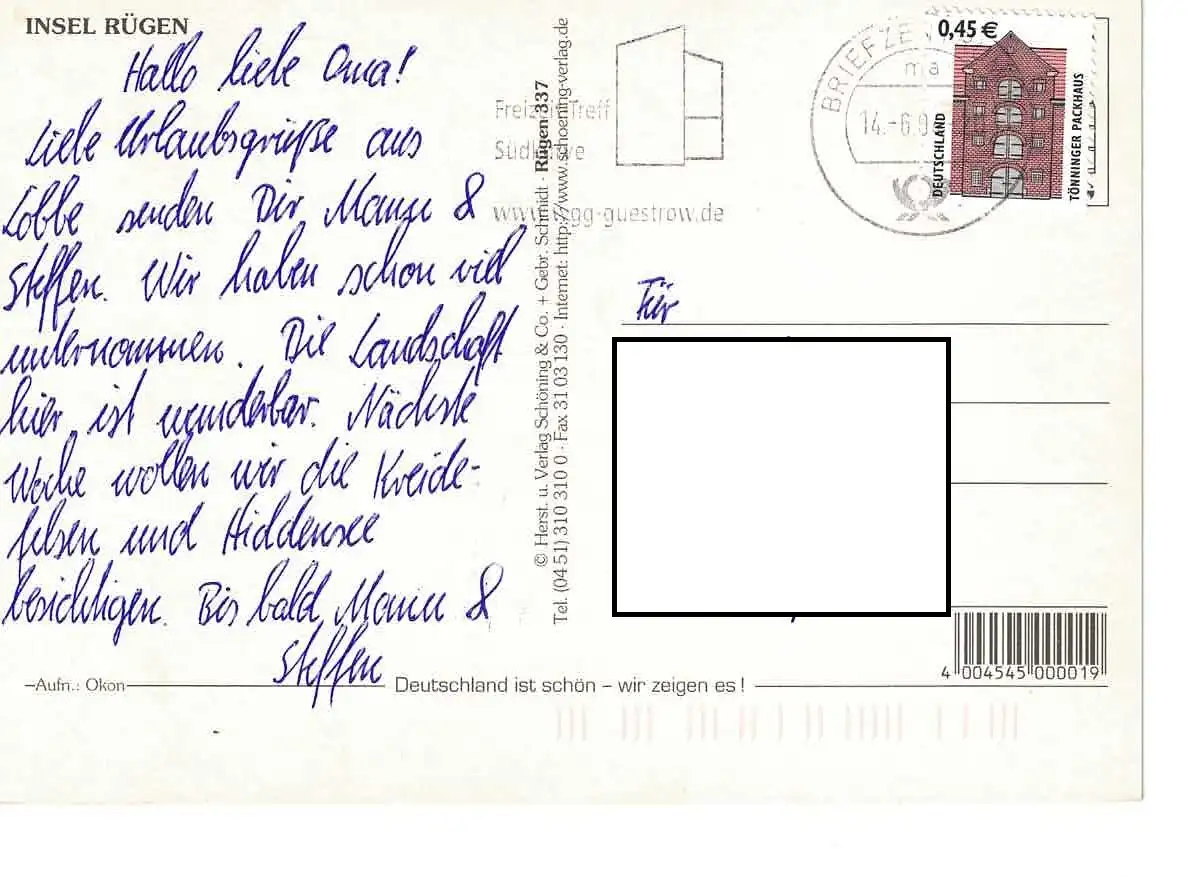 INSEL RÜGEN
Hallo liebe Oma!
Liebe Urlaubsgrüße aus
Lobbe senden Dir Mann &
Steffen. Wir haben schon viel
unternommen. Die Landschaft
hier ist wunderbar. Nächste
Woche wollen wir die Kreide-
felsen und Hiddensee
besichtigen. Bis bald, Mann &
Steffen
Aufn.: Okon
Deutschland ist schön – wir zeigen es!
© Herst. u. Verlag Schöning & Co. + Gebr. Schmidt · Rügen 337
Tel. (04 51) 310 310 0 · Fax 31 03 130 · Internet: http://www.schoening-verlag.de
Freizeit Treff
www. gg-guestrow.de
BRIEFZEN
ma
14.-6.0
0,45 €
DEUTSCHLAND
TÖNNINGER PACKHAUS
Für
4 004545 000019